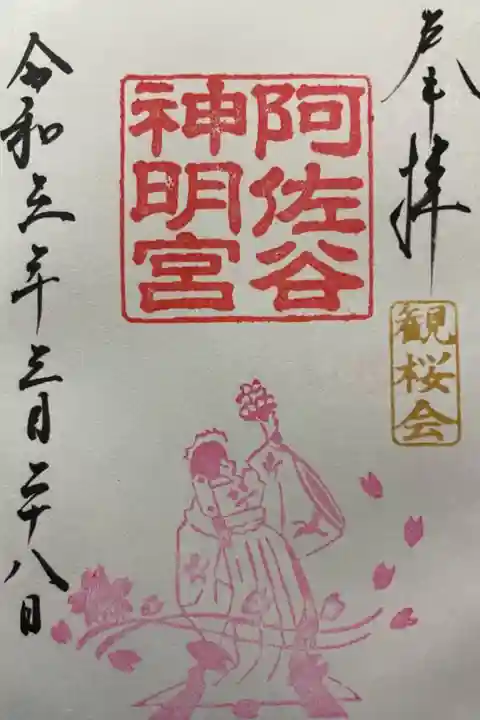 奉拝
観桜会
阿佐谷
神明宮
令和三年三月二十八日